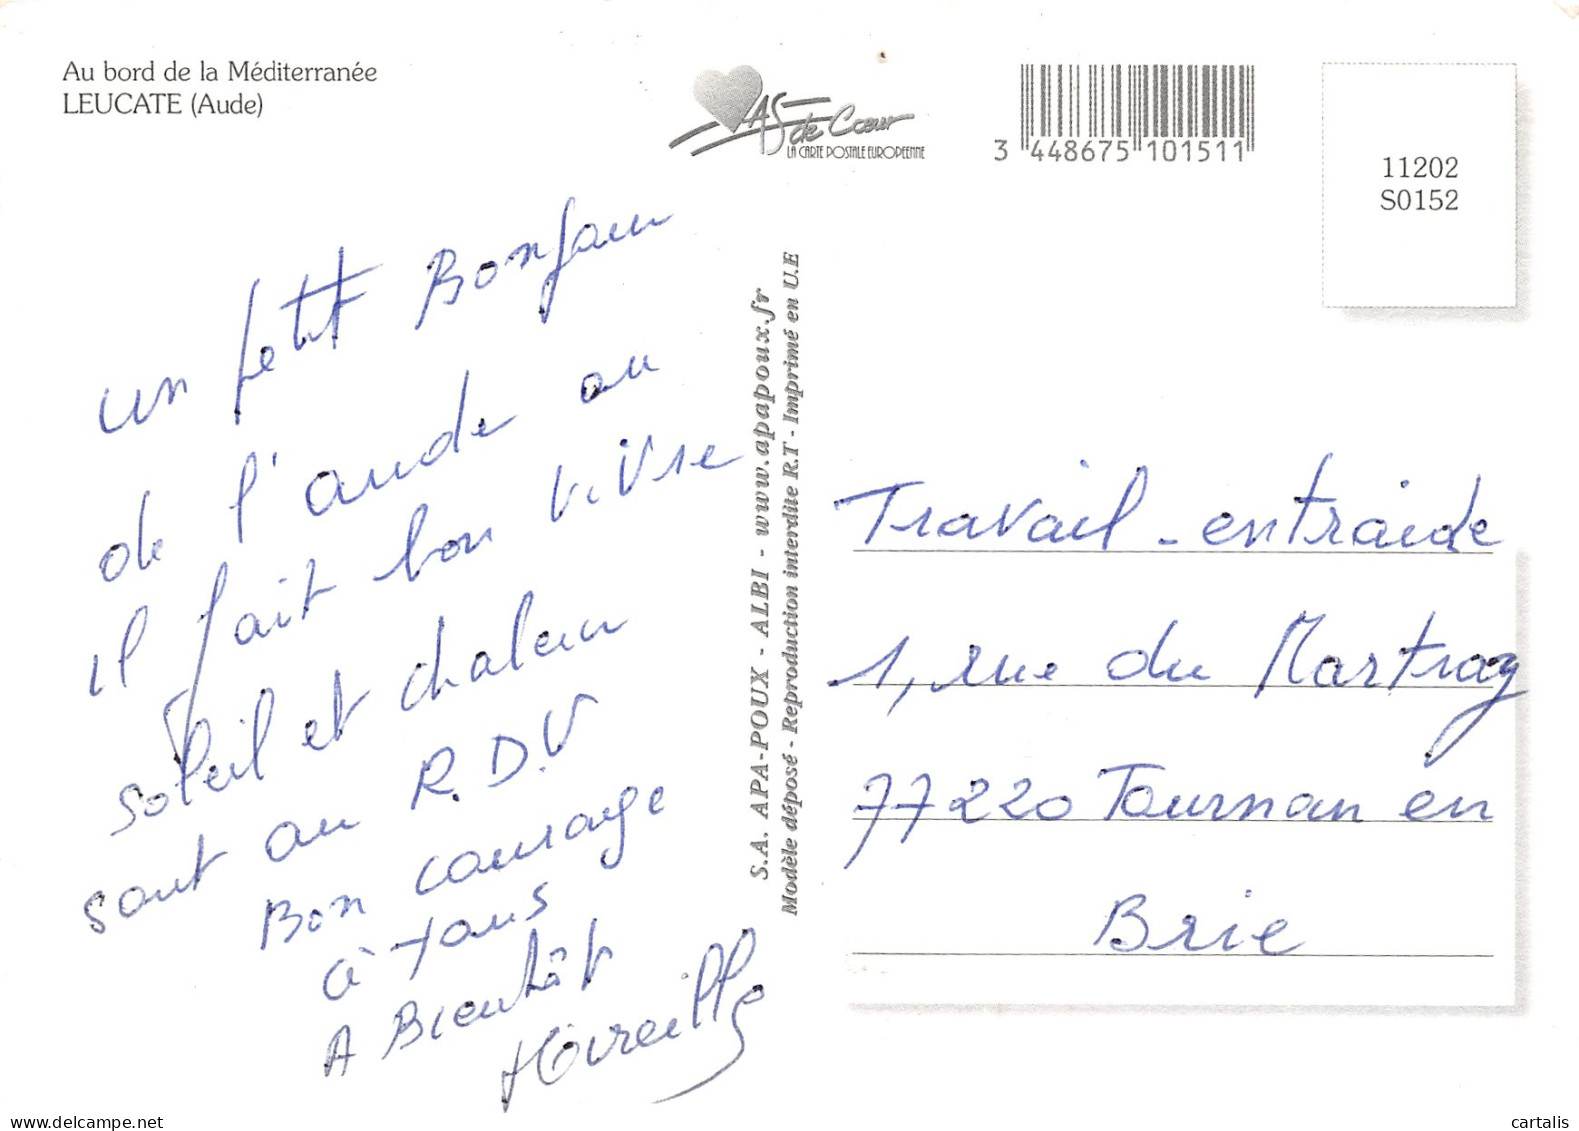 Au bord de la Méditerranée
LEUCATE (Aude)
AS de Cœur
LA CARTE POSTALE EUROPEENNE
3 448675 101511
11202
S0152
un petit Bonjour
de l'aude ou
il fait bon vivre
soleil et chaleur
sont au R.D.V
Bon courage
à tous
A Bientôt
Mireille
S.A. APA-POUX - ALBI - www.apapoux.fr
Modèle déposé - Reproduction interdite R.T - Imprimé en U.E
Travail - entraide
1, rue du Martray
77220 Tournan en
Brie
delcampe.net
cartalis